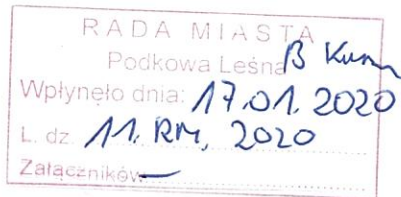 RADA MIASTA
Podkowa Leśna
Wpłynęło dnia: 17.01.2020
L. dz. 11. RM. 2020
Załączników —